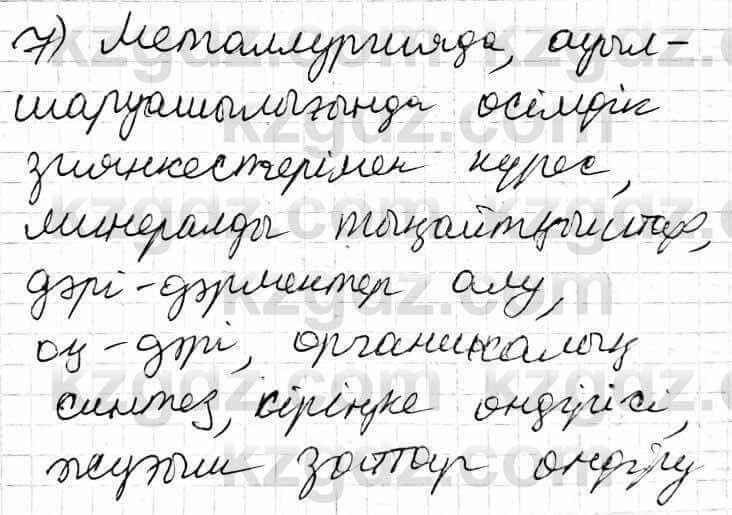 7) Металлургияда, ауыл-
шаруашылығында өсімдік
зиянкестерімен күрес,
минералды тыңайтқыштар,
дәрі-дәрмектер алу,
оқ-дәрі, органикалық
синтез, сіріңке өндірісі,
жуғыш заттар өндіру